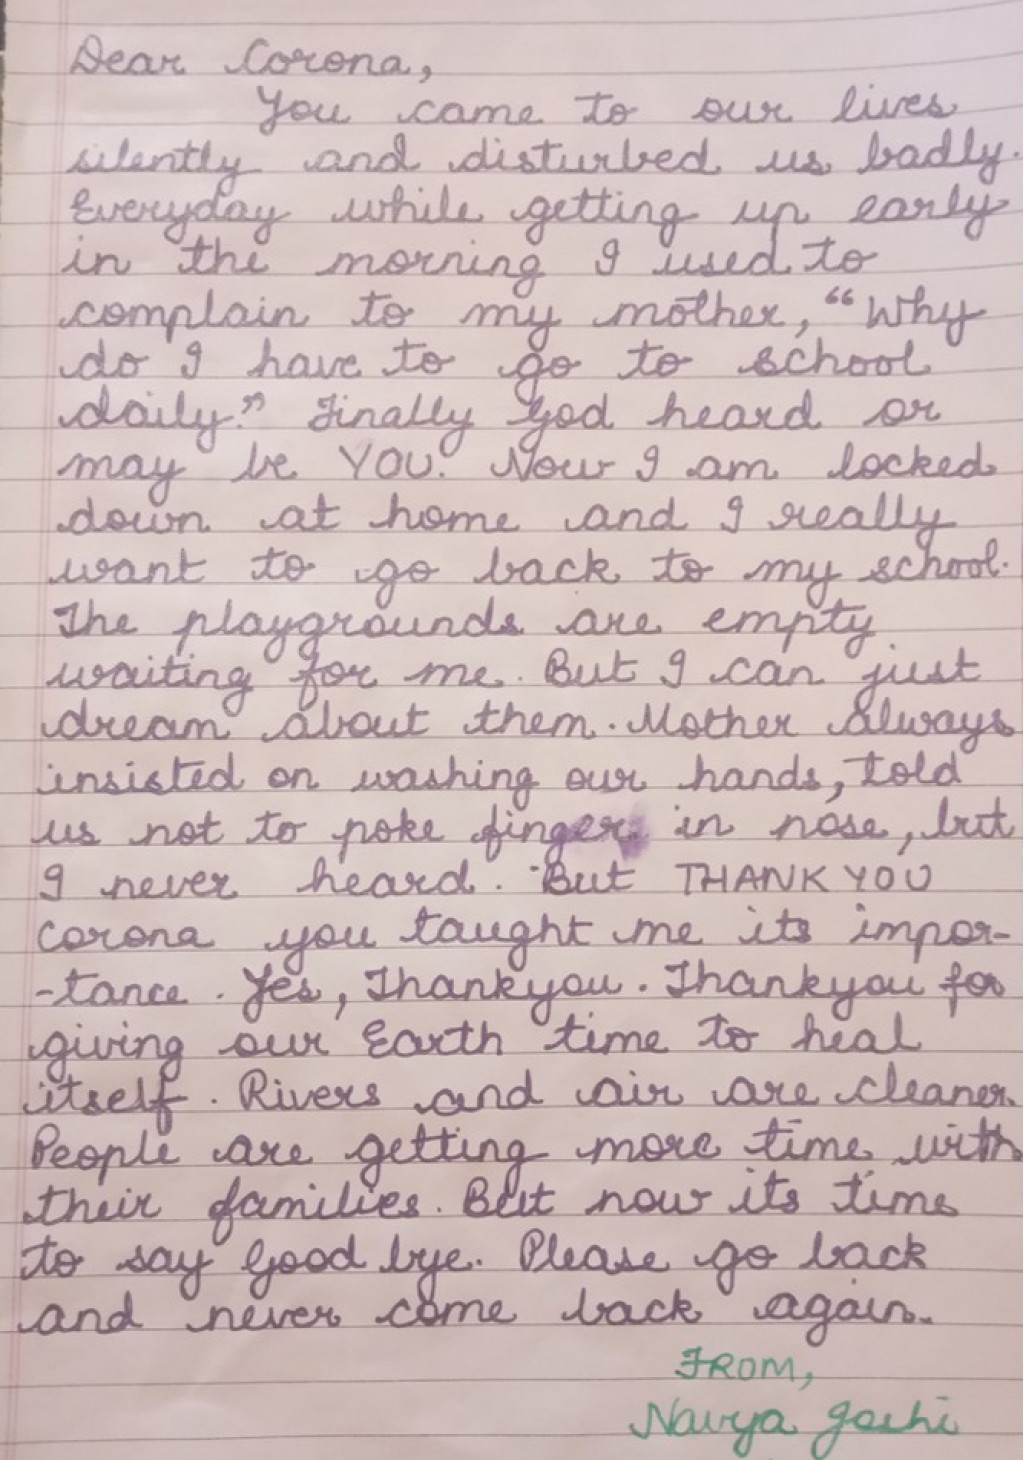 Dear Corona,
You came to our lives
silently and disturbed us badly.
Everyday while getting up early
in the morning I used to
complain to my mother, “Why
do I have to go to school
daily.” Finally God heard or
may be YOU. Now I am locked
down at home and I really
want to go back to my school.
The playgrounds are empty
waiting for me. But I can just
dream about them. Mother always
insisted on washing our hands, told
us not to poke finger in nose, but
I never heard. But THANK YOU
corona you taught me its impor-
-tance. Yes, Thankyou. Thankyou for
giving our Earth time to heal
itself. Rivers and air are cleaner.
People are getting more time with
their families. But now its time
to say Good bye. Please go back
and never come back again.
FROM,
Navya Joshi